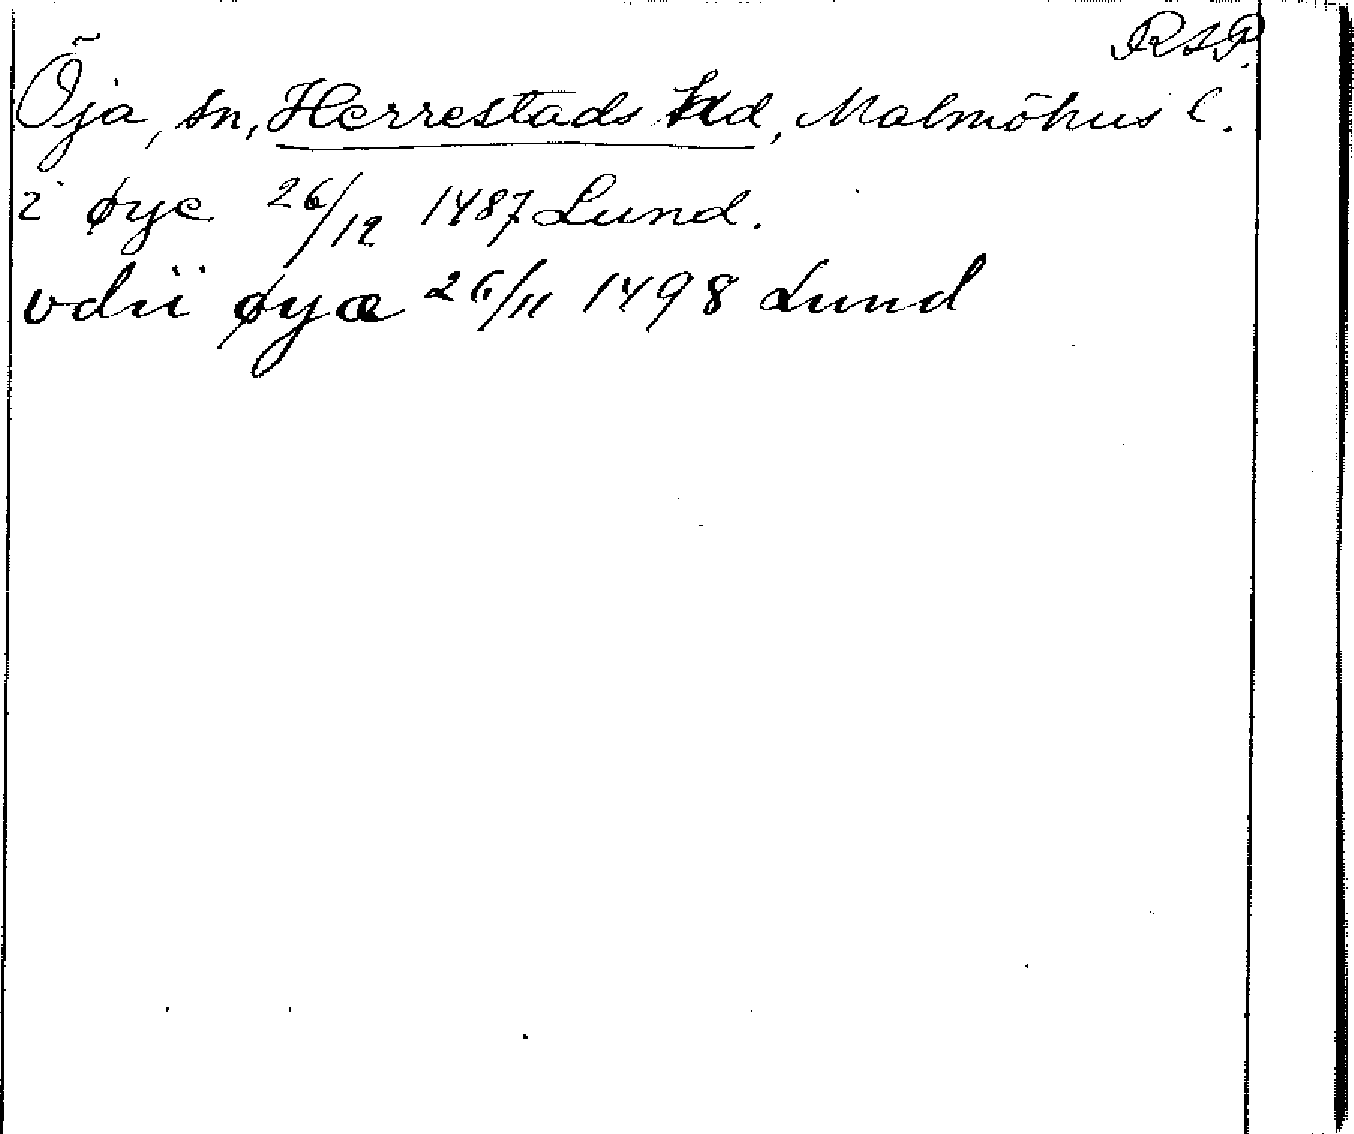 RAP.
Öja, sn, Herrestads hd, Malmöhus l.
i øye 26/12 1487 Lund.
vdii øyæ 26/11 1498 Lund